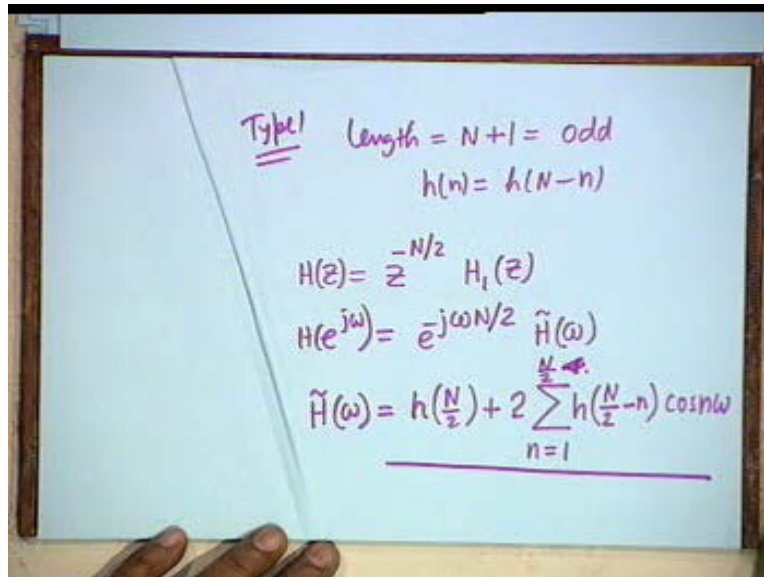 Type 1 length = N+1 = odd
h(n) = h(N-n)
H(z) = z^{-N/2} H_1(z)
H(e^{jω}) = e^{-jωN/2} H̃(ω)
H̃(ω) = h(N/2) + 2 ∑_{n=1}^{N/2} h(N/2 - n) cos nω